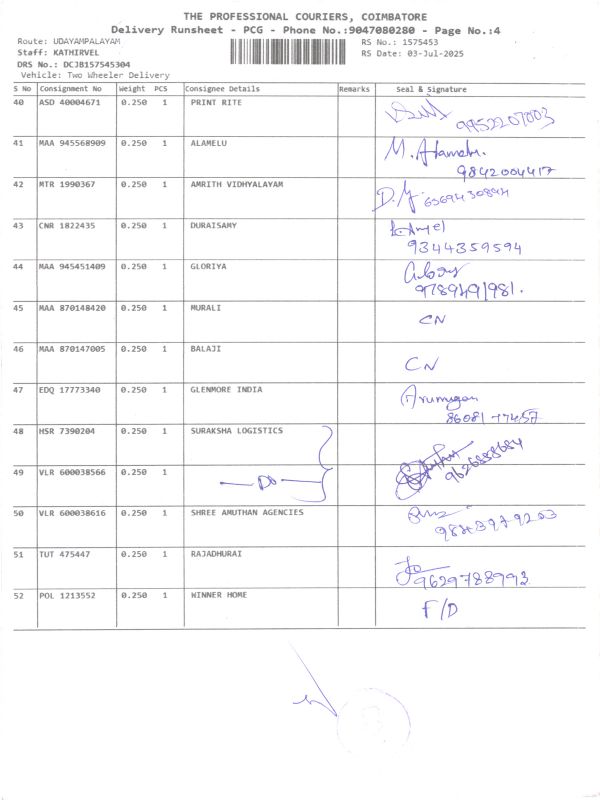 THE PROFESSIONAL COURIERS, COIMBATORE
Delivery Runsheet - PCG - Phone No.:9047080280 - Page No.:4
Route: UDAYAMPALAYAM
RS No.: 1575453
Staff: KATHIRVEL
RS Date: 03-Jul-2025
DRS No.: DCJB157545304
Vehicle: Two Wheeler Delivery
S No Consignment No Weight PCS Consignee Details Remarks Seal & Signature
40 ASD 40004671 0.250 1 PRINT RITE
9952207003
41 MAA 945568909 0.250 1 ALAMELU M. Alamelu.
9842004417
42 MTR 1990367 0.250 1 AMRITH VIDHYALAYAM
43 CNR 1822435 0.250 1 DURAISAMY
9344359594
44 MAA 945451409 0.250 1 GLORIYA
9789491981.
45 MAA 870148420 0.250 1 MURALI CN
46 MAA 870147005 0.250 1 BALAJI CN
47 EDQ 17773340 0.250 1 GLENMORE INDIA Arumugam
86081 77457
48 HSR 7390204 0.250 1 SURAKSHA LOGISTICS
9626888684
49 VLR 600038566 0.250 1 Do
50 VLR 600038616 0.250 1 SHREE AMUTHAN AGENCIES
9843979203
51 TUT 475447 0.250 1 RAJADHURAI
9629788993
52 POL 1213552 0.250 1 WINNER HOME F/D